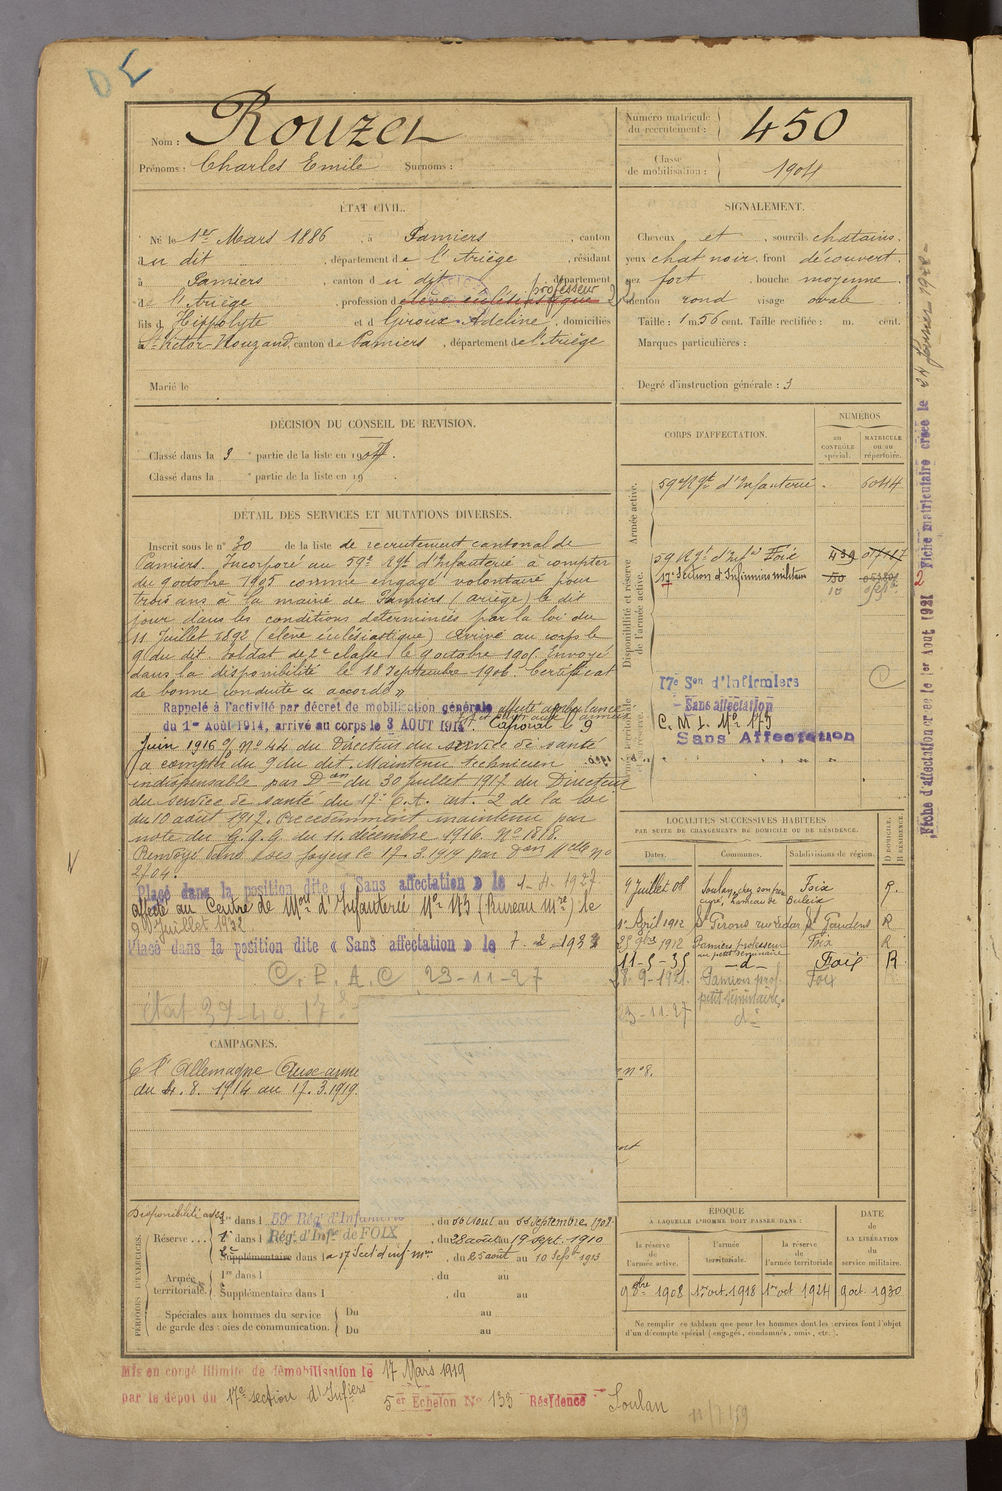 Nom : Rouzel
Prénoms : Charles Emile Surnoms :
Numéro matricule du recrutement : 450
Classe de mobilisation : 1904
ÉTAT CIVIL.
Né le 1er Mars 1886, à Pamiers, canton
du dit, département de l'Ariège, résidant
à Pamiers, canton du dit, département
de l'Ariège, profession d'élève ecclésiastique professeur
fils d'Hippolyte et d Giroux Adeline, domiciliés
à St Victor-Rouzaud, canton de Pamiers, département de l'Ariège
Marié le
SIGNALEMENT.
Cheveux et, sourcils chatains.
yeux chat noir, front découvert.
nez fort, bouche moyenne
menton rond visage ovale
Taille : 1 m. 56 cent. Taille rectifiée : m. cent.
Marques particulières :
Degré d'instruction générale : 3
DÉCISION DU CONSEIL DE REVISION.
Classé dans la 3e partie de la liste en 1907.
Classé dans la e partie de la liste en 19
CORPS D'AFFECTATION.
NUMÉROS
AU CONTRÔLE spécial.
MATRICULE OU AU répertoire.
Armée active.
59e Rgt d'Infanterie 6044
Disponibilité et réserve de l'armée active.
59 Rgt d'Infie Foix 439
17e Section d'Infirmiers militaires 150
10
17e Son d'Infirmiers
- Sans affectation
C. M. I. No 173
Sans Affectation
DÉTAIL DES SERVICES ET MUTATIONS DIVERSES.
Inscrit sous le n° 30 de la liste de recrutement cantonal de
Pamiers. Incorporé au 59e Rgt d'Infanterie à compter
du 9 octobre 1905 comme engagé volontaire pour
trois ans à la mairie de Pamiers (Ariège) le dit
jour dans les conditions déterminées par la loi du
11 Juillet 1892 (élève ecclésiastique) Arrivé au corps le
9 du dit. Soldat de 2e classe le 9 octobre 1905 Envoyé
dans la disponibilité le 18 Septembre 1906. Certificat
de bonne conduite "accordé"
Rappelé à l'activité par décret de mobilisation générale affecté ambulance
du 1er Août 1914, arrivé au corps le 3 AOUT 1914. Caporal le 9
Juin 1916 No 44 du Directeur du service de santé
à compter du 9 du dit. Maintenu technicien
indispensable par Don du 30 Juillet 1917 du Directeur
du service de santé du 17e C.A. art. 2 de la loi
du 10 août 1917. Precedemment maintenu par
note du G.Q.G. du 11 décembre 1916. No 1818.
Renvoyé dans ses foyers le 17.3.1919 par Don Melle no
2704.
Placé dans la position dite « Sans affectation » le 1-4-1927
affecté au Centre de Mon d'Infanterie No 173 (Bureau mre) le
Juillet 1932
Placé dans la position dite « Sans affectation » le 7-2-1933
C. P. A. C 23-11-27
état 39-40
LOCALITÉS SUCCESSIVES HABITÉES
PAR SUITE DE CHANGEMENTS DE DOMICILE OU DE RÉSIDENCE.
Dates. Communes. Subdivisions de région. D DOMICILE. R RÉSIDENCE.
9 Juillet 08 Soulan, chez son frère curé, hameau de Buleix Foix R.
1er Avril 1912 St Girons St Gaudens R
1912 Pamiers professeur au petit séminaire Foix R
11-5-35 -d- Foix R
28-9-1921. Pamiers prof. petit séminaire. Foix
23-11-27 do
no 8.
CAMPAGNES.
C l'Allemagne Aux armées
du 4.8.1914 au 17.3.1919.
PÉRIODES D'EXERCICES.
Disponibilité
Réserve . . . 1re dans l 59e Rég. d'Infanterie, du au Septembre 1908
Rég. d'Infie de FOIX, du 28 août au 19 Sept. 1910
Supplémentaire dans la 17 Sect d'inf mres, du 25 août au 10 Sept 1913
Armée territoriale. 1re dans l, du au
Supplémentaire dans l, du au
Spéciales aux hommes du service de garde des voies de communication. Du au
Du au
ÉPOQUE
A LAQUELLE L'HOMME DOIT PASSER DANS :
la réserve de l'armée active.
l'armée territoriale.
la réserve de l'armée territoriale
DATE de LA LIBÉRATION du service militaire.
9 8bre 1908 1er oct. 1918 1er oct 1924 9 oct. 1930
Ne remplir ce tableau que pour les hommes dont les services font l'objet
d'un décompte spécial (engagés, condamnés, omis, etc.).
Mis en congé illimité de démobilisation le 17 Mars 1919
par le dépôt du 17e section d'Infiers
5er Echelon No 133 Résidence Soulan
Fiche d'affectation créée le 1er Aout 1921
2 Fiche matriculaire créée le 24 février 1928